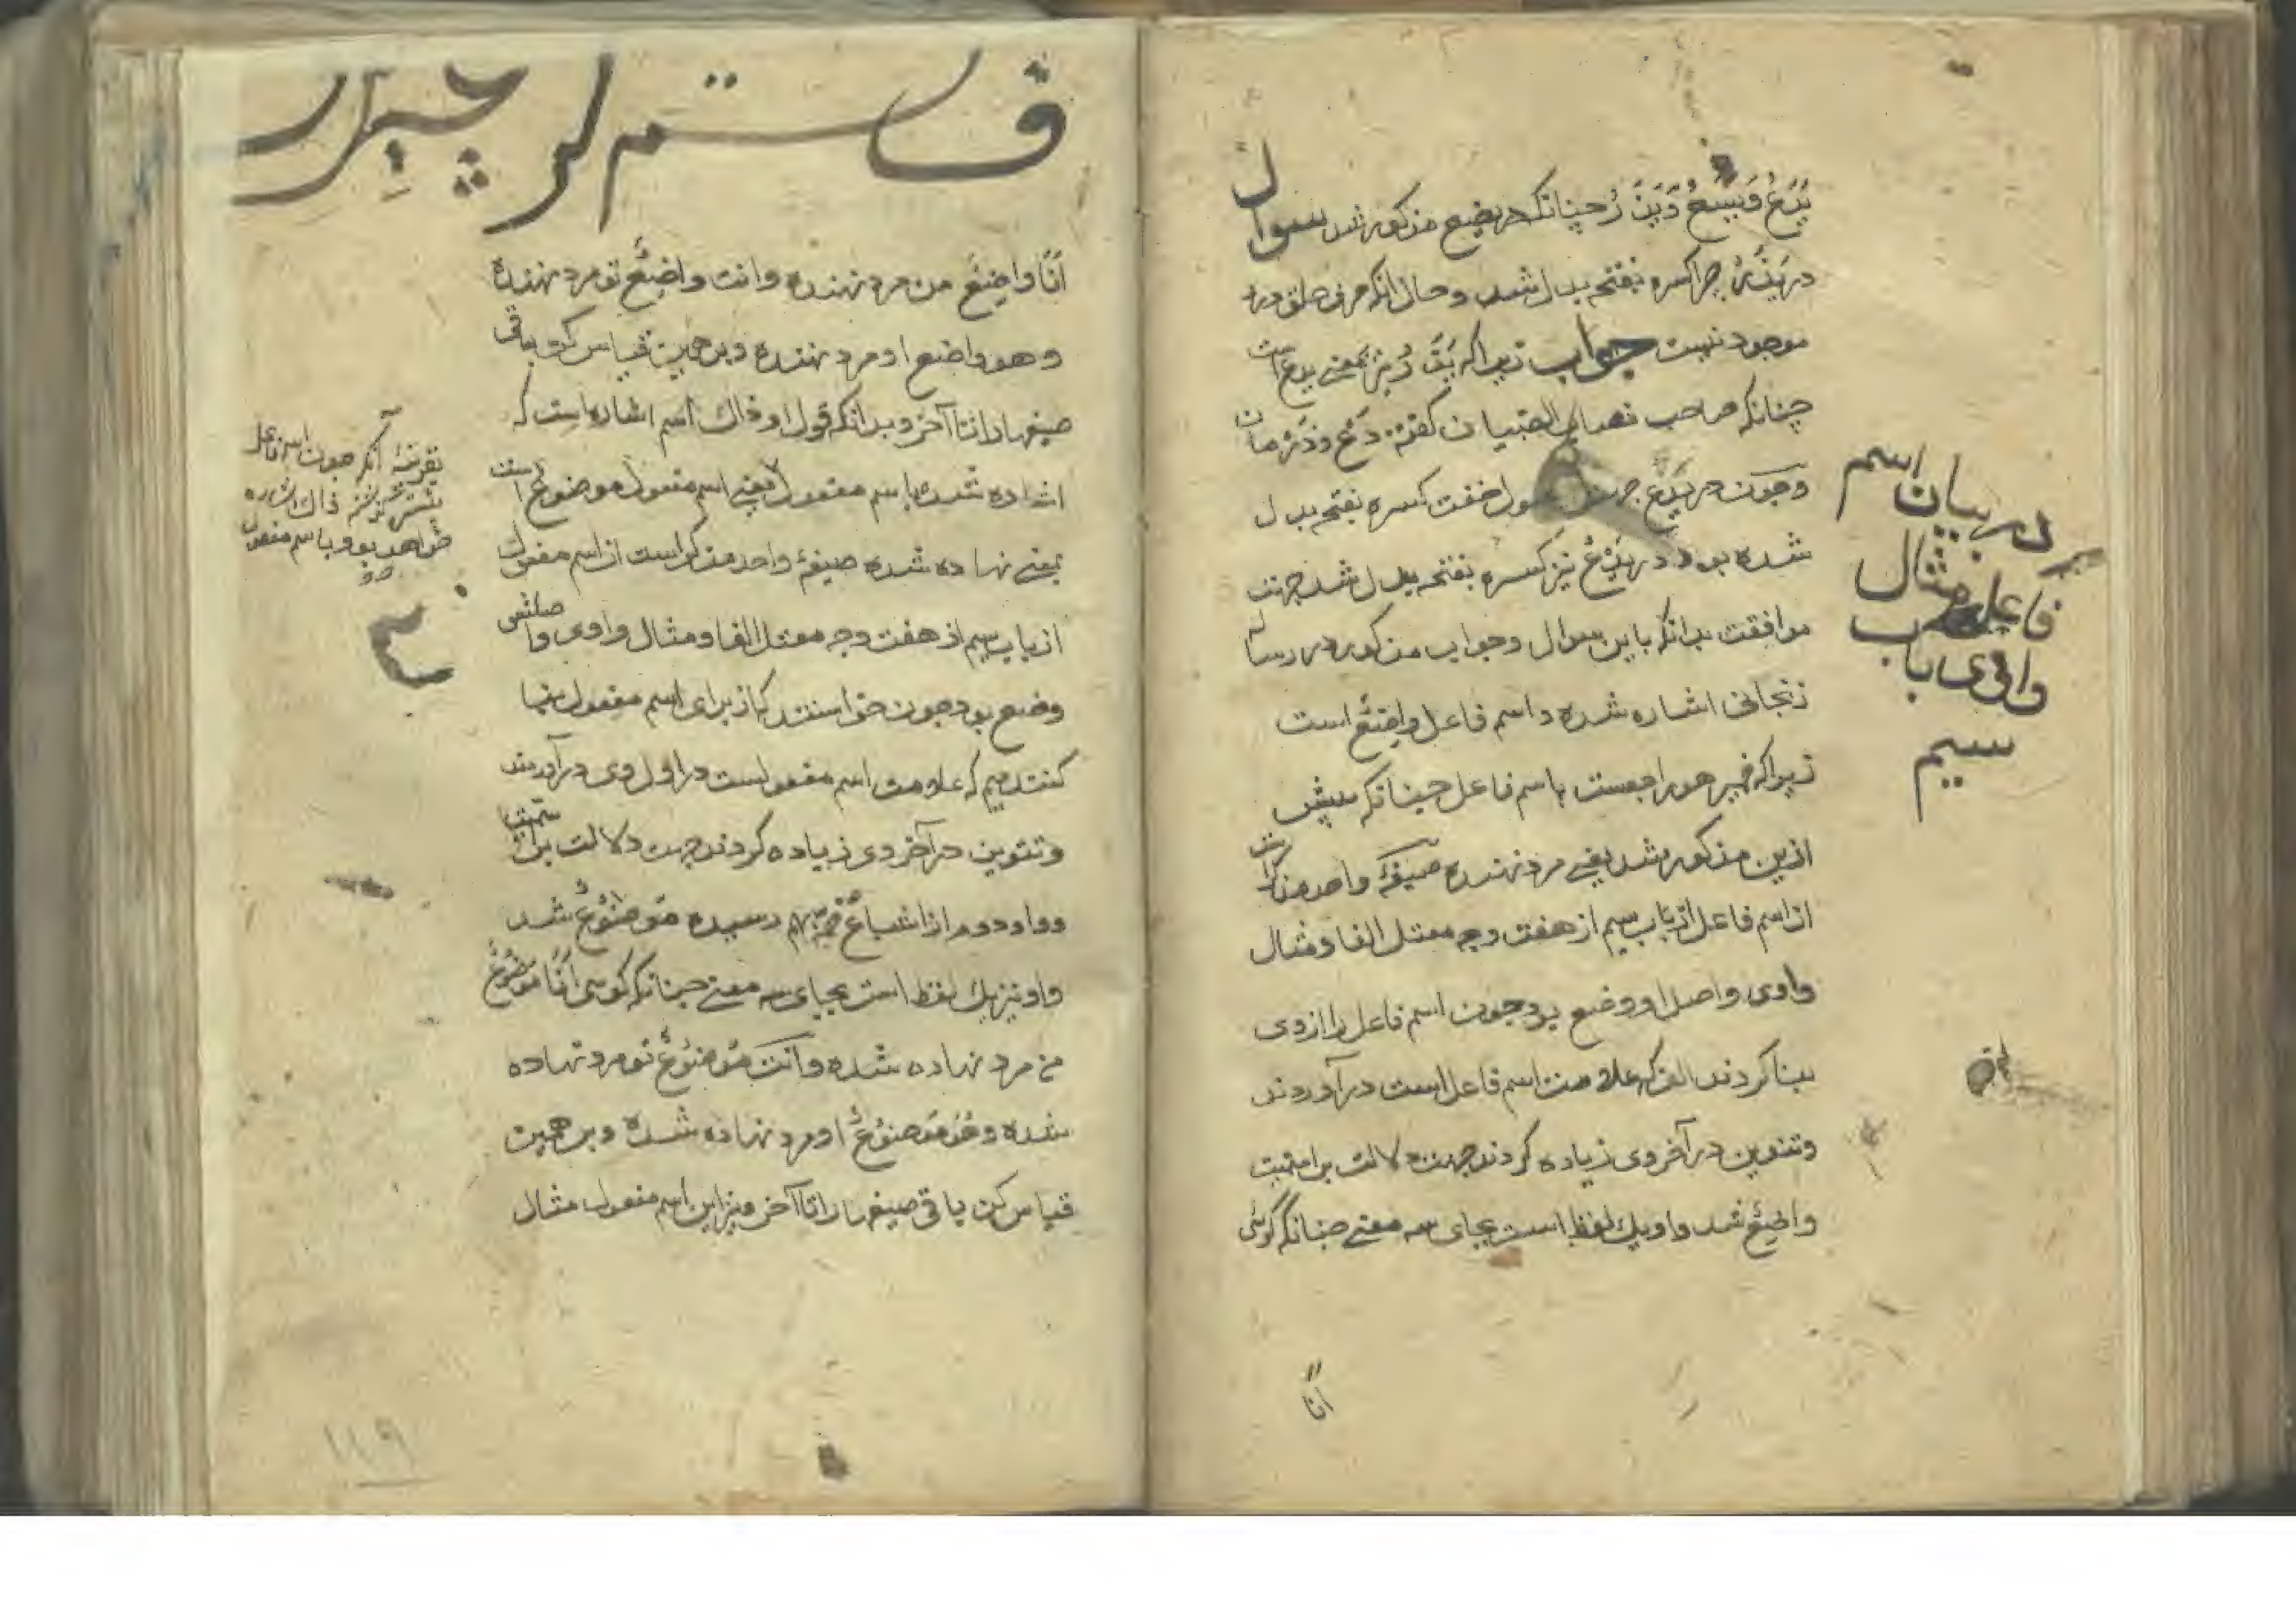 یَدَعُ وَیَسَعُ وَیَذَرُ چنانکه در یضع مذکور شد سوال
در یَذَرُ چرا کسره بفتحه بدل شد و حال آنکه حرف حلق درو
موجود نیست جواب زیرا که یَذَرُ بمعنی یدع است
چنانکه صاحب نصاب الصبیان گفته دَعْ وذَرْ مان
وچون در یَدَعُ جهت خفت کسره بفتحه بدل
شده بود در یَذَرُ نیز کسره بفتحه بدل شد جهت
موافقت بدانکه باین سوال وجواب مذکور در رساله
زنجانی اشاره شده واسم فاعل واضِعٌ است
زیرا که ضمیر هو راجعست باسم فاعل چنانکه پیش
ازین مذکور شد یعنی مرد نهنده صیغهٔ واحد مذکراست
از اسم فاعل از باب سیم از هفت وجه معتل الفا ومثال
واوی واصل او وضع بود چون اسم فاعل را از وی
بنا کردند الف که علامت اسم فاعل است درآوردند
وتنوین در آخر وی زیاده کردند جهت دلالت بر اسمیت
واضِعٌ شد واو یک لفظ است بجای سه معنی چنانکه گوئی
انَا
در بیان اسم
فاعل مثال
واوی باب
سیم
اَنَا واضِعٌ من مرد نهنده وانت واضِعٌ تو مرد نهنده
وهو واضع او مرد نهنده وبرهمین قیاس کن باقی
صیغها را تا آخر وبدانکه قول او ذاك اسم اشاره است که
اشاره شده باسم مفعول یعنی اسم مفعول موضوعٌ است
بمعنی نهاده شده صیغهٔ واحد مذکر است از اسم مفعول
از باب سیم از هفت وجه معتل الفا ومثال واوی واصلش
وضع بود چون خواستند که از برای اسم مفعول بنا
کنند میم که علامت اسم مفعولست در اول وی درآوردند
وتنوین در آخر وی زیاده کردند جهت دلالت بر اسمیت
وواو دوم از اشباع ضمه بهم رسیده مَوضُوعٌ شد
واو نیز یک لفظ است بجای سه معنی چنانکه گوئی اَنَا مَوضُوعٌ
من مرد نهاده شده وانت مَوضُوعٌ تو مرد نهاده
شده وهُوَ مَوضُوعٌ او مرد نهاده شده وبرهمین
قیاس کن باقی صیغها را تا آخر ونیز این اسم مفعول مثال
بقرینهٔ آنکه چون اسم فاعل
ذاك اشاره
خواهد بود باسم مفعول
۱۱۹